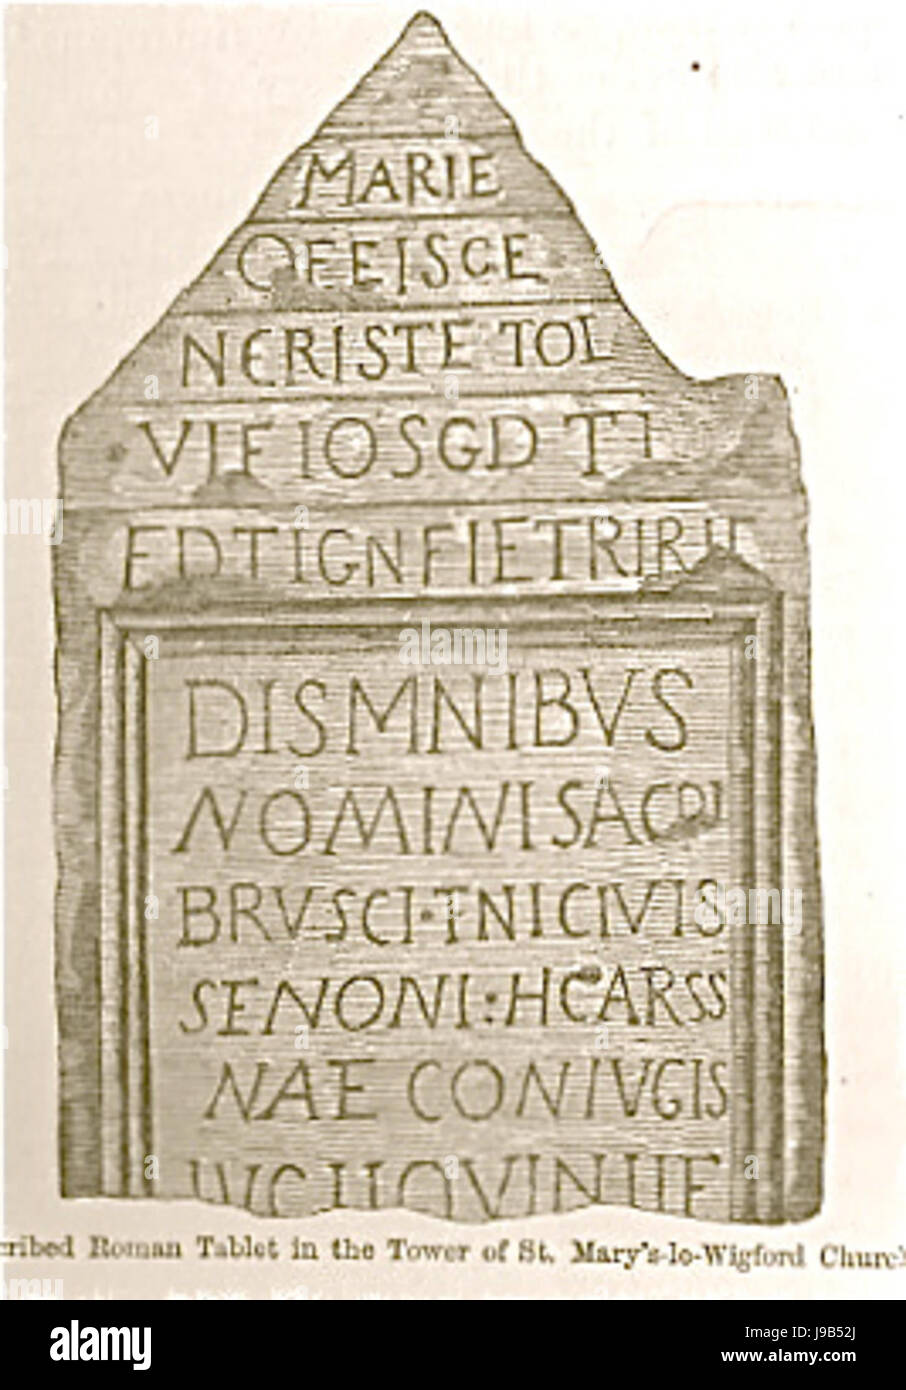 MARIE
OFEISCE
NERISTE TOL
VIFIOSGD TI
EDTIGNFIETRIRII
DISMNIBVS
NOMINISACRI
BRVSCI·TNICIVIS
SENONI:HCARSS
NAE CONIVGIS
QVIN
cribed Roman Tablet in the Tower of St. Mary's-lo-Wigford Churc
alamy
alamy
Image ID: J9B52J
www.alamy.com